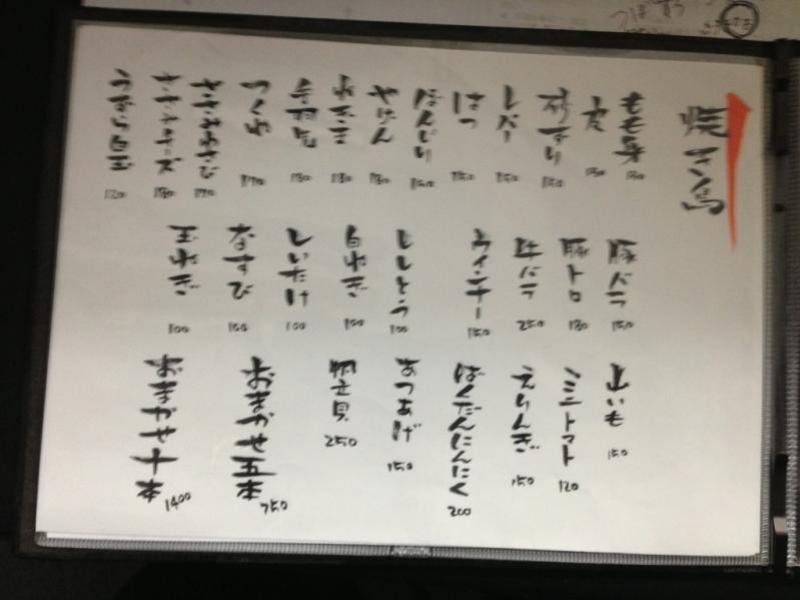 焼き鳥
もも身 130
皮 130
砂ずり 150
レバー 150
はつ 150
ぼんじり 150
やげん 130
ねぎま 130
手羽先 180
つくね 170
ささみわさび 170
ささみチーズ 180
うずら白玉 120
豚バラ 150
豚トロ 180
牛バラ 250
ウインナー 150
ししとう 100
白ねぎ 100
しいたけ 100
なすび 100
玉ねぎ 100
山いも 150
ミニトマト 120
えりんぎ 150
ばくだんにんにく 200
あつあげ 150
帆立貝 250
おまかせ五本 750
おまかせ十本 1400